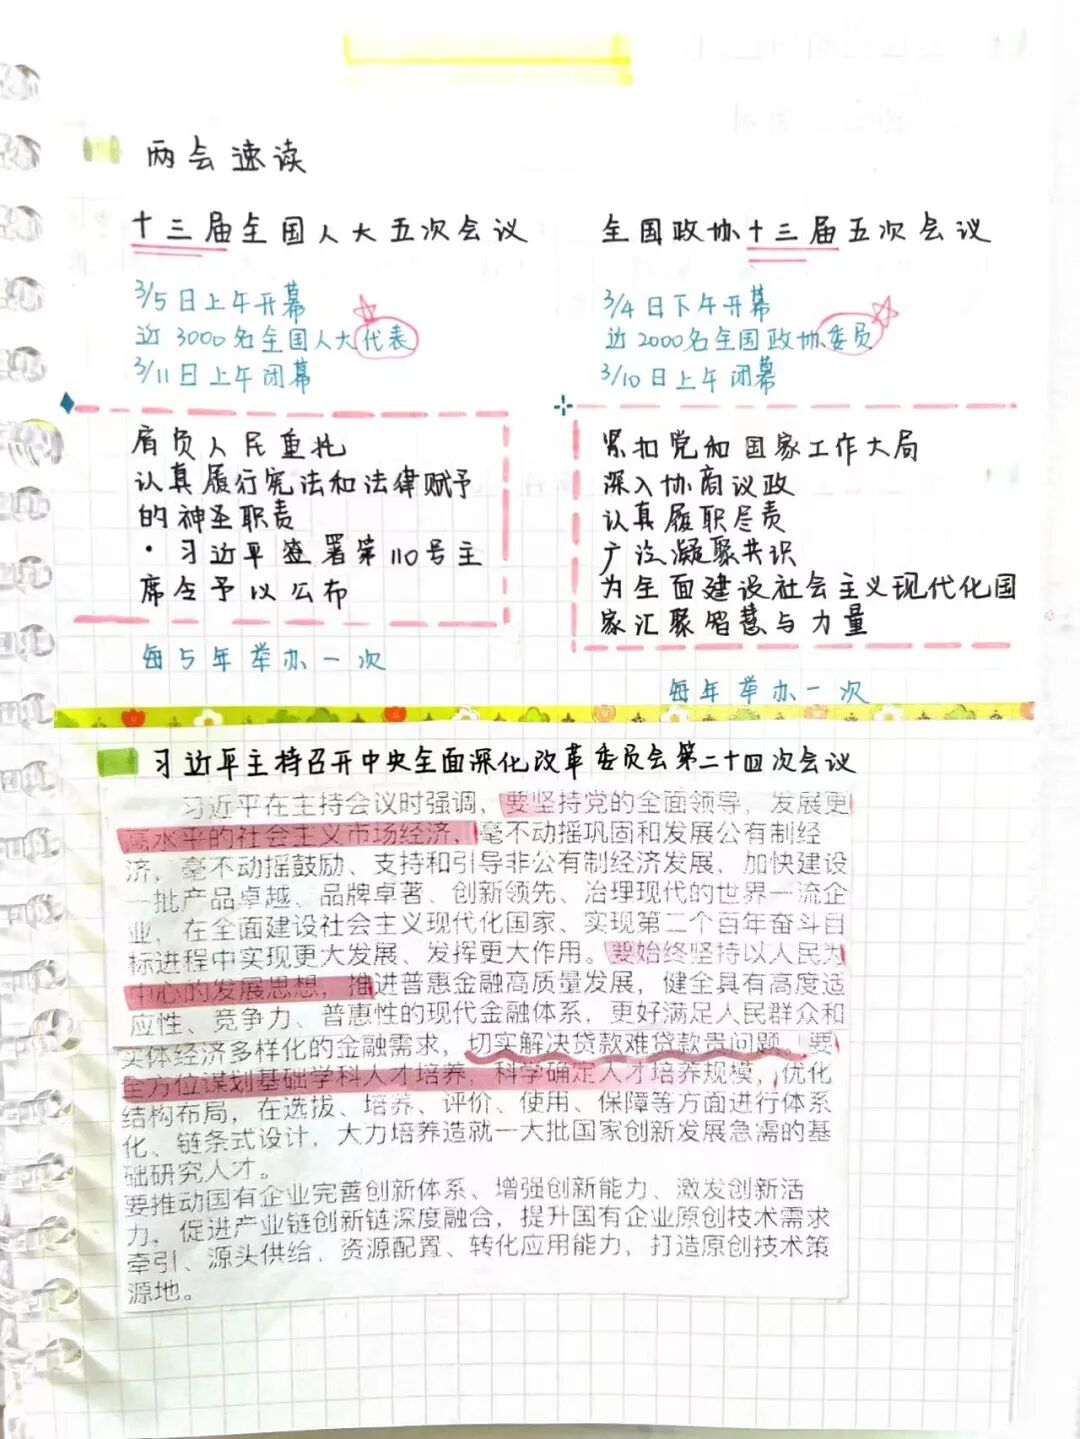 两会速读
十三届全国人大五次会议
3/5日上午开幕
近3000名全国人大代表
3/11日上午闭幕
肩负人民重托
认真履行宪法和法律赋予
的神圣职责
·习近平签署第110号主
席令予以公布
每5年举办一次
全国政协十三届五次会议
3/4日下午开幕
近2000名全国政协委员
3/10日上午闭幕
紧扣党和国家工作大局
深入协商议政
认真履职尽责
广泛凝聚共识
为全面建设社会主义现代化国
家汇聚智慧与力量
每年举办一次
习近平主持召开中央全面深化改革委员会第二十四次会议
习近平在主持会议时强调，要坚持党的全面领导，发展更
高水平的社会主义市场经济，毫不动摇巩固和发展公有制经
济，毫不动摇鼓励、支持和引导非公有制经济发展，加快建设
一批产品卓越、品牌卓著、创新领先、治理现代的世界一流企
业，在全面建设社会主义现代化国家、实现第二个百年奋斗目
标进程中实现更大发展、发挥更大作用。要始终坚持以人民为
中心的发展思想，推进普惠金融高质量发展，健全具有高度适
应性、竞争力、普惠性的现代金融体系，更好满足人民群众和
实体经济多样化的金融需求，切实解决贷款难贷款贵问题。要
全方位谋划基础学科人才培养，科学确定人才培养规模，优化
结构布局，在选拔、培养、评价、使用、保障等方面进行体系
化、链条式设计，大力培养造就一大批国家创新发展急需的基
础研究人才。
要推动国有企业完善创新体系、增强创新能力、激发创新活
力，促进产业链创新链深度融合，提升国有企业原创技术需求
牵引、源头供给、资源配置、转化应用能力，打造原创技术策
源地。